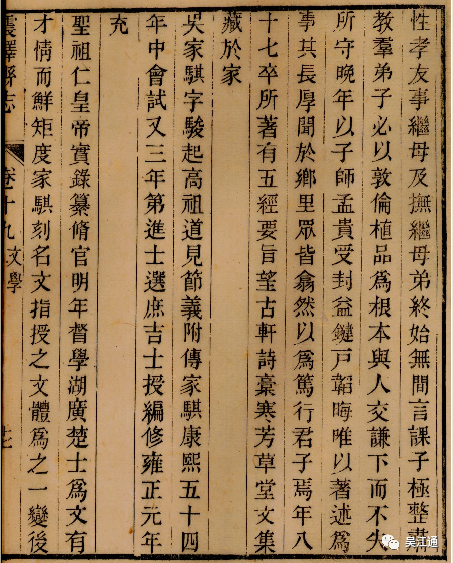 性孝友事繼母及撫繼母弟終始無間言課子極整肅
教羣弟子必以敦倫植品為根本與人交謙下而不失
所守晚年以子師孟貴受封益鍵戶韜晦唯以著述為
事其長厚聞於鄉里眾皆翕然以為篤行君子焉年八
十七卒所著有五經要旨望古軒詩稾寒芳草堂文集
藏於家
吳家騏字駿起高祖道見節義附傳家騏康熙五十四
年中會試又三年第進士選庶吉士授編修雍正元年
充
聖祖仁皇帝實錄纂脩官明年督學湖廣楚士為文有
才情而鮮矩度家騏刻名文指授之文體為之一變後
震澤縣志
卷十九
文學
吴江通